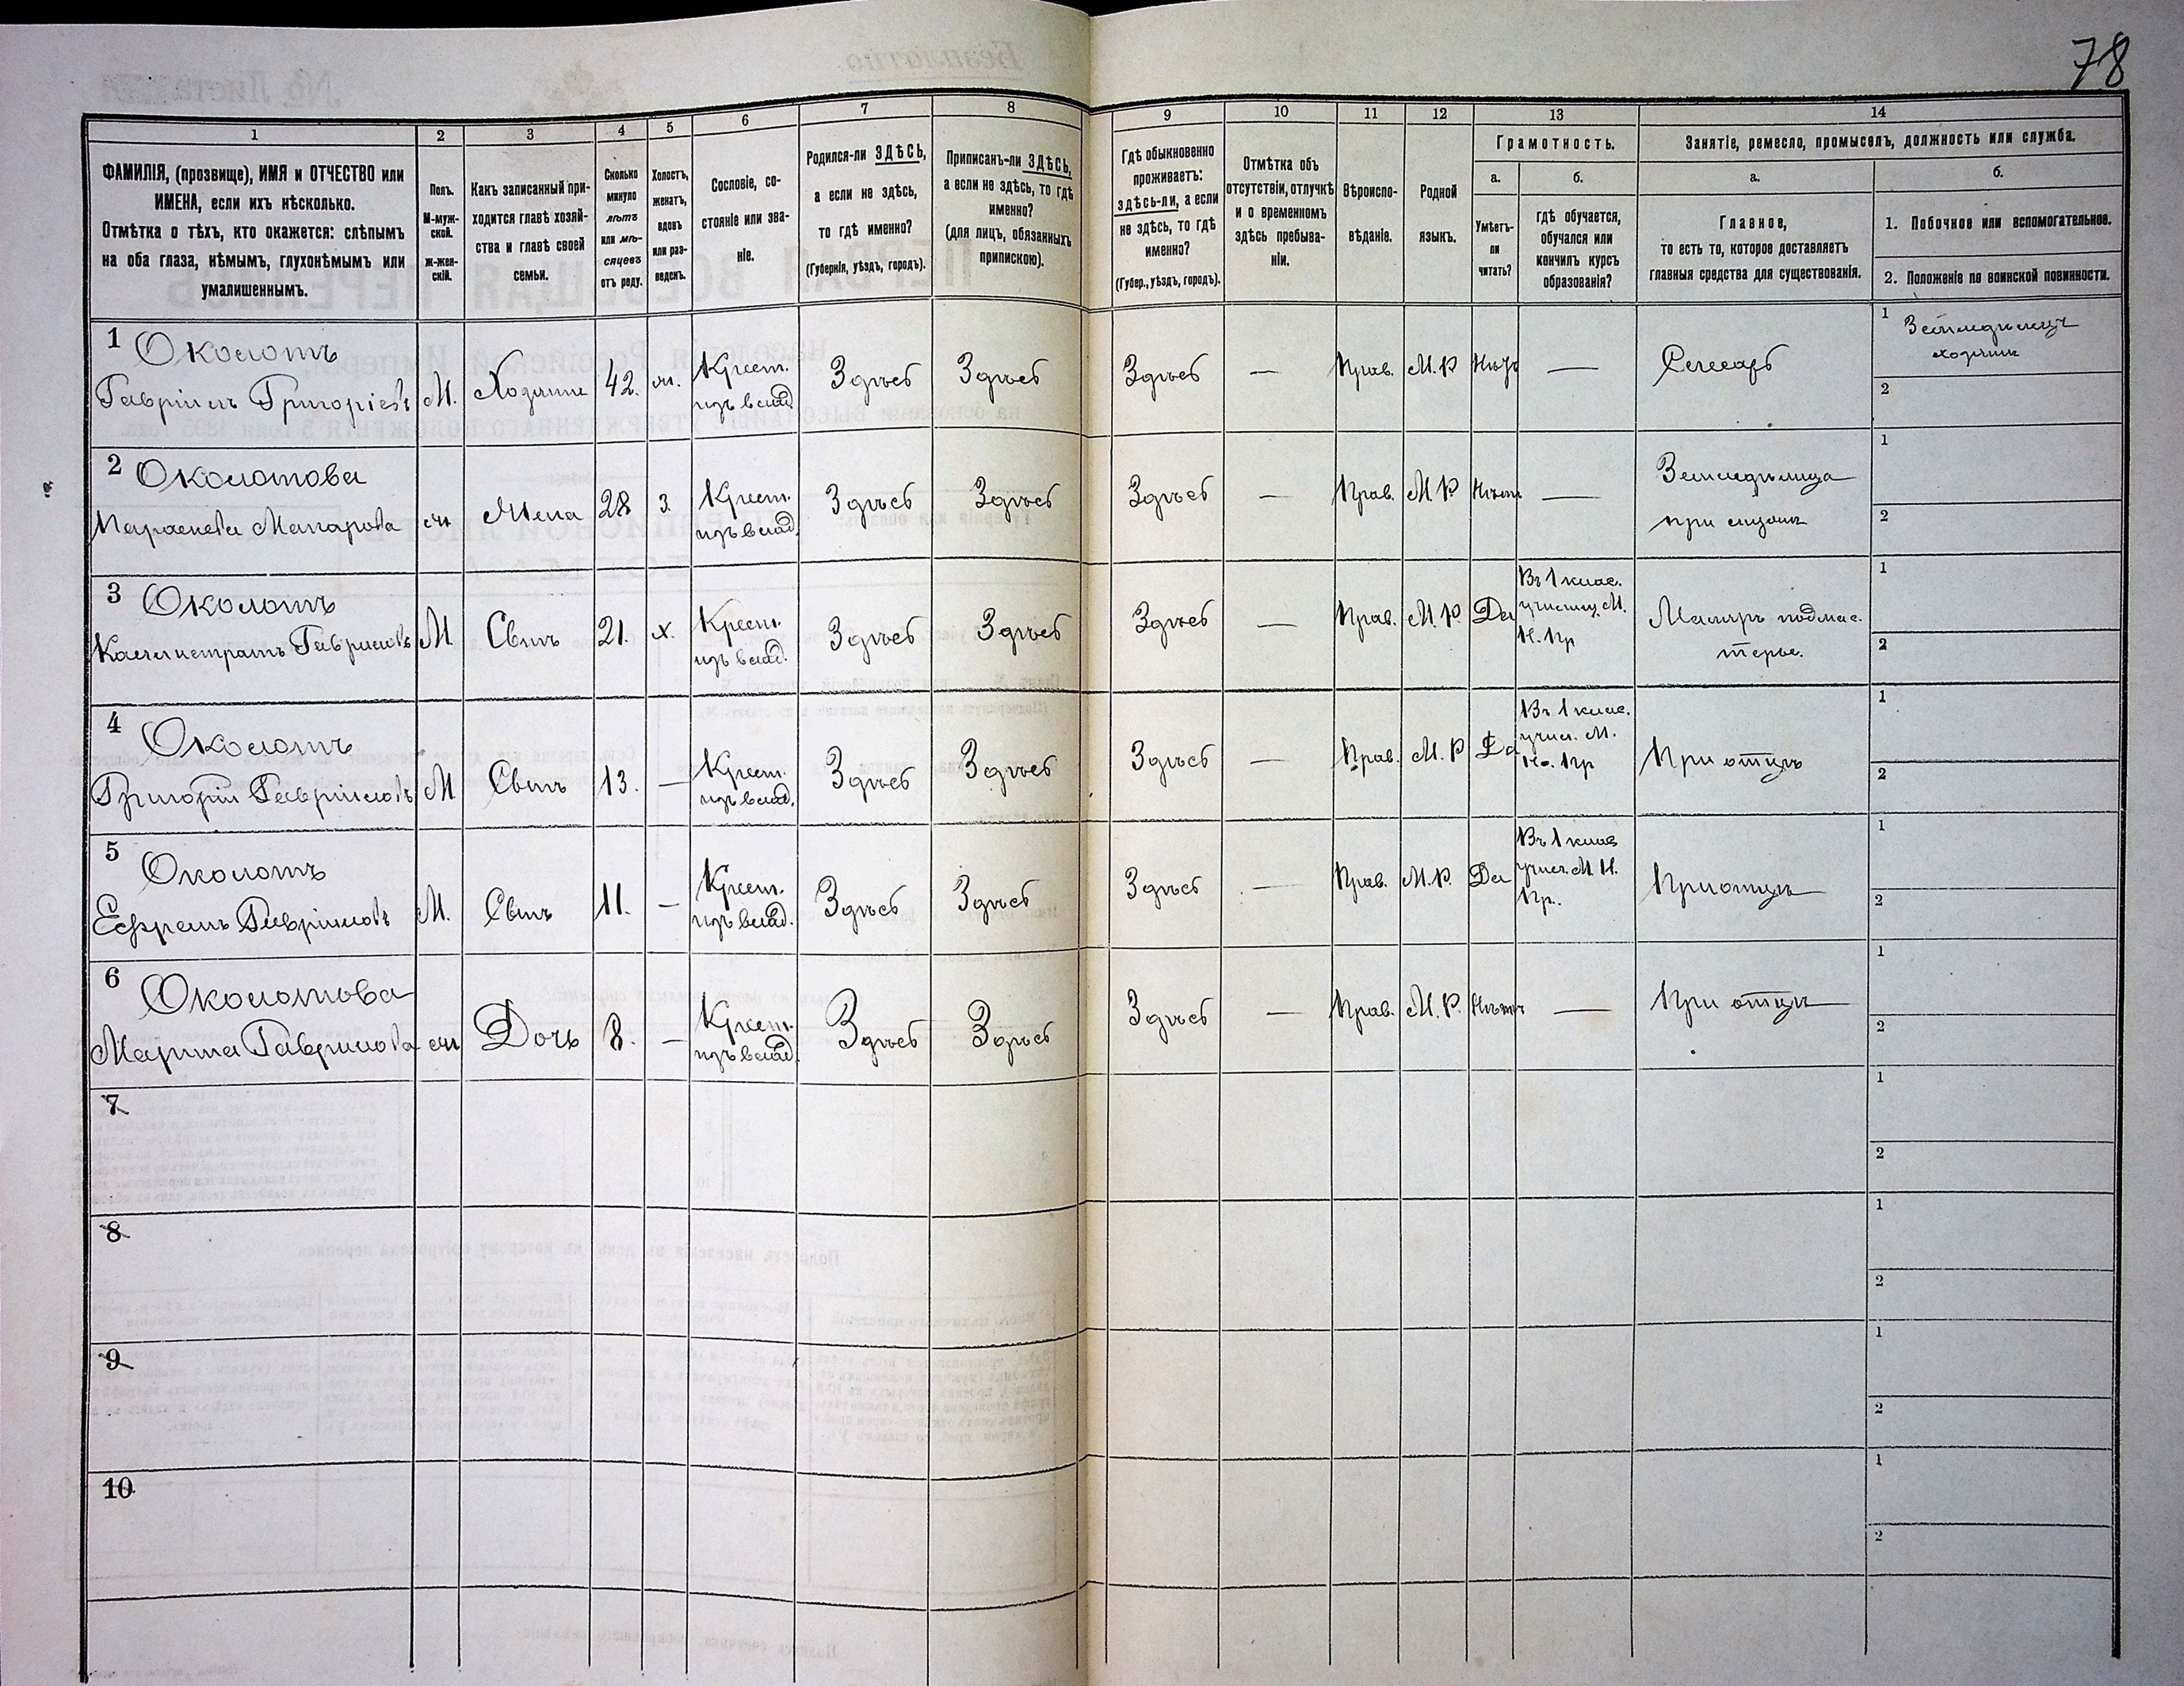 78
1 2 3 4 5 6 7 8 9 10 11 12 13 14
ФАМИЛІЯ, (прозвище), ИМЯ и ОТЧЕСТВО или
ИМЕНА, если ихъ нѣсколько.
Отмѣтка о тѣхъ, кто окажется: слѣпымъ
на оба глаза, нѣмымъ, глухонѣмымъ или
умалишеннымъ.
Полъ.
М-муж-
ской.
ж-жен-
скій.
Какъ записанный при-
ходится главѣ хозяй-
ства и главѣ своей
семьи.
Сколько
минуло
лѣтъ
или мѣ-
сяцевъ
отъ роду.
Холостъ,
женатъ,
вдовъ
или раз-
веденъ.
Сословіе, со-
стояніе или зва-
ніе.
Родился-ли ЗДѢСЬ,
а если не здѣсь,
то гдѣ именно?
(Губернія, уѣздъ, городъ).
Приписанъ-ли ЗДѢСЬ,
а если не здѣсь, то гдѣ
именно?
(для лицъ, обязанныхъ
припискою).
Гдѣ обыкновенно
проживаетъ:
здѣсь-ли, а если
не здѣсь, то гдѣ
именно?
(Губер., уѣздъ, городъ).
Отмѣтка объ
отсутствіи, отлучкѣ
и о временномъ
здѣсь пребыва-
ніи.
Вѣроиспо-
вѣданіе.
Родной
языкъ.
Грамотность.
а.
Умѣетъ-
ли
читать?
б.
гдѣ обучается,
обучался или
кончилъ курсъ
образованія?
Занятіе, ремесло, промыселъ, должность или служба.
а.
Главное,
то есть то, которое доставляетъ
главныя средства для существованія.
б.
1. Побочное или вспомогательное.
2. Положеніе по воинской повинности.
1 Околотъ
Гавріилъ Григоріевъ М. Хозяинъ 42. ж. Крест.
изъ влад. Здѣсь Здѣсь Здѣсь — Прав. М. Р — Слесарь
1 Земледѣлецъ
хозяинъ
2
2 Околотова
Параскева Макарова ж Жена 28 з. Крест.
изъ влад. Здѣсь Здѣсь Здѣсь — Прав. М. Р Нѣтъ — Земледѣлица
при мужѣ
1
2
3 Околотъ
Калистратъ Гавриловъ М Сынъ 21. х. Крест.
изъ влад. Здѣсь Здѣсь Здѣсь — Прав. М. Р. Да Въ 1 клас.
училищ. М.
Н. Пр Маляръ подмас-
терье.
1
2
4 Околотъ
Григорій Гавріиловъ М Сынъ 13. — Крест.
изъ влад. Здѣсь Здѣсь Здѣсь — Прав. М. Р Да Въ 1 клас.
учил. М.
Н. Пр При отцѣ
1
2
5 Околотъ
Ефремъ Гавріиловъ М. Сынъ 11. — Крест.
изъ влад. Здѣсь Здѣсь Здѣсь — Прав. М. Р. Да Въ 1 клас
учил. М Н.
Пр. При отцѣ
1
2
6 Околотова
Марина Гаврилова ж Дочь 8. — Крест.
изъ влад. Здѣсь Здѣсь Здѣсь — Прав. М. Р. Нѣтъ — При отцѣ
1
2
7
1
2
8
1
2
9
1
2
10
1
2